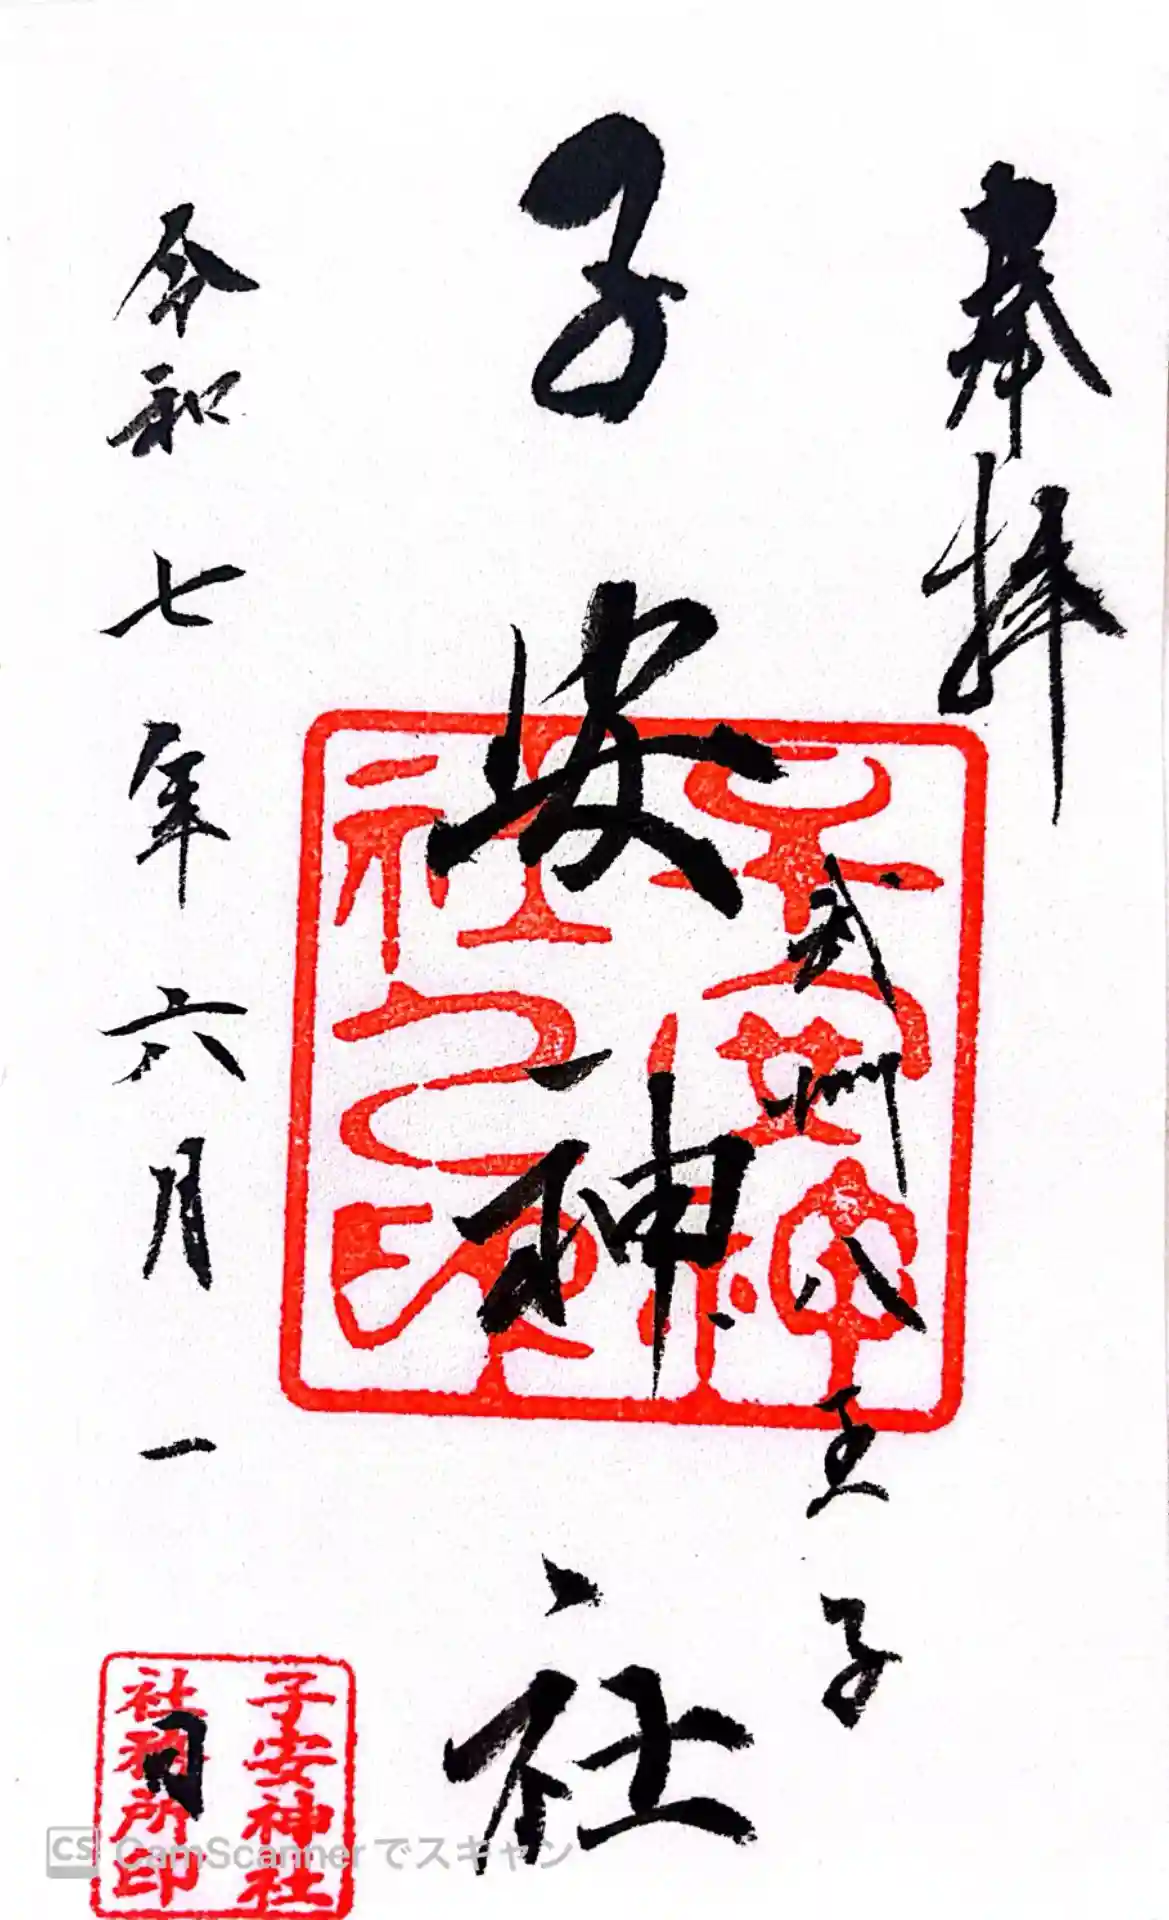 奉拝
武州八王子
子安神社
令和七年六月一日
子安神社之印
子安神社
社務所印
CS CamScannerでスキャン